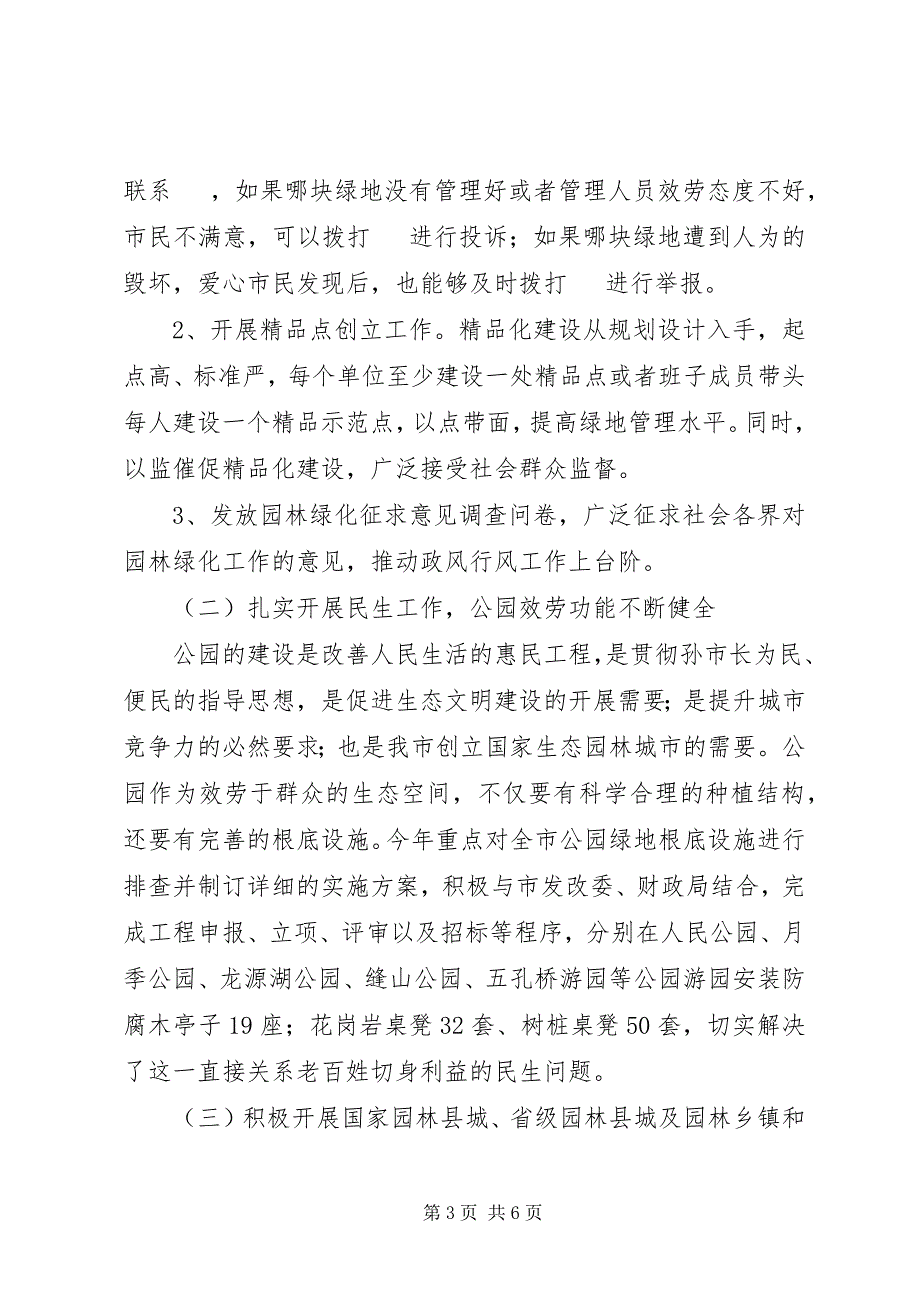 联系　，如果哪块绿地没有管理好或者管理人员效劳态度不好，
市民不满意，可以拨打　进行投诉；如果哪块绿地遭到人为的
毁坏，爱心市民发现后，也能够及时拨打　进行举报。
2、开展精品点创立工作。精品化建设从规划设计入手，起
点高、标准严，每个单位至少建设一处精品点或者班子成员带头
每人建设一个精品示范点，以点带面，提高绿地管理水平。同时，
以监催促精品化建设，广泛接受社会群众监督。
3、发放园林绿化征求意见调查问卷，广泛征求社会各界对
园林绿化工作的意见，推动政风行风工作上台阶。
（二）扎实开展民生工作，公园效劳功能不断健全
公园的建设是改善人民生活的惠民工程，是贯彻孙市长为民、
便民的指导思想，是促进生态文明建设的开展需要；是提升城市
竞争力的必然要求；也是我市创立国家生态园林城市的需要。公
园作为效劳于群众的生态空间，不仅要有科学合理的种植结构，
还要有完善的根底设施。今年重点对全市公园绿地根底设施进行
排查并制订详细的实施方案，积极与市发改委、财政局结合，完
成工程申报、立项、评审以及招标等程序，分别在人民公园、月
季公园、龙源湖公园、缝山公园、五孔桥游园等公园游园安装防
腐木亭子 19 座；花岗岩桌凳 32 套、树桩桌凳 50 套，切实解决
了这一直接关系老百姓切身利益的民生问题。
（三）积极开展国家园林县城、省级园林县城及园林乡镇和
第 3 页 共 6 页